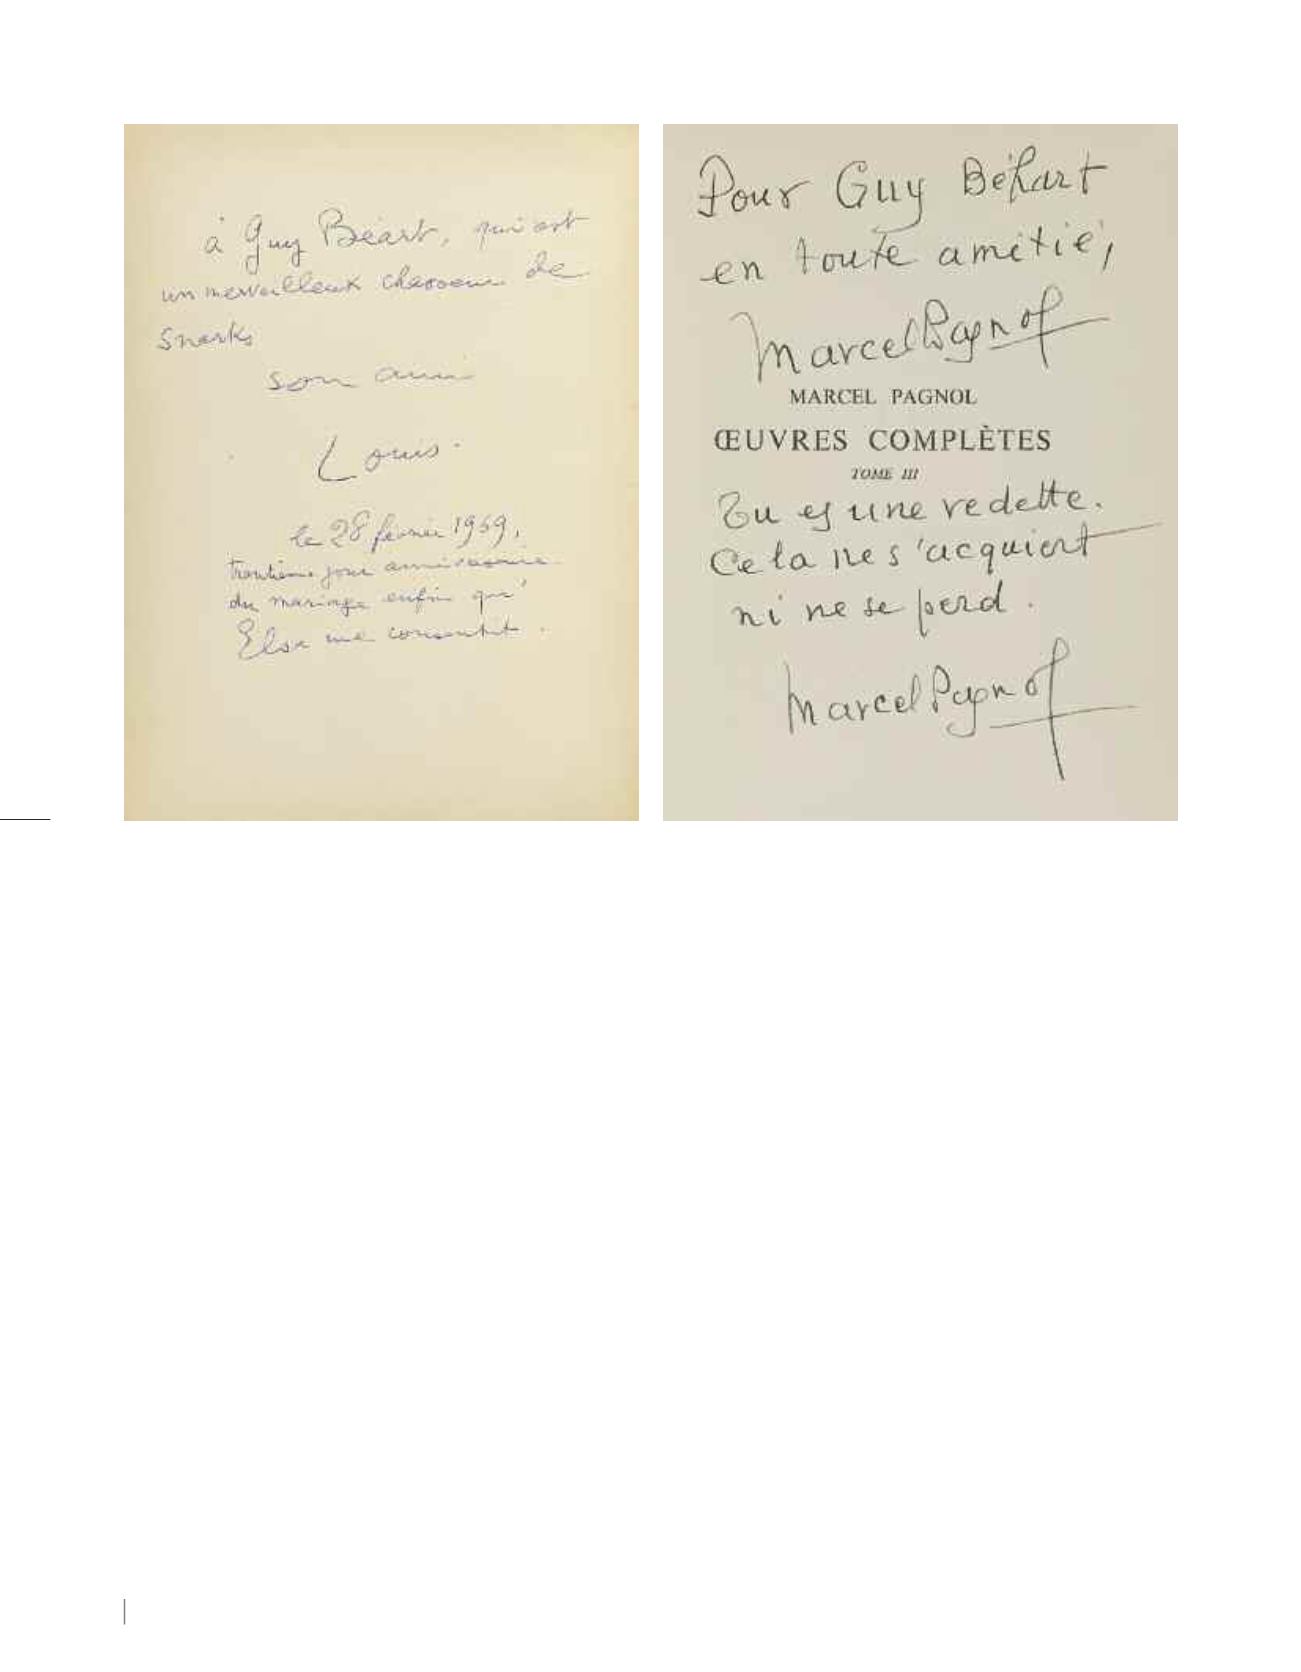 à Guy Béart, qui est
un merveilleux chasseur de
Snarks
son ami
Louis.
le 28 février 1969,
trentième jour anniversaire
du mariage enfin qu'
Elsa me consentit.
Pour Guy Béhart
en toute amitié,
Marcel Pagnol
MARCEL PAGNOL
ŒUVRES COMPLÈTES
TOME III
Tu es une vedette.
Cela ne s'acquiert
ni ne se perd.
Marcel Pagnol